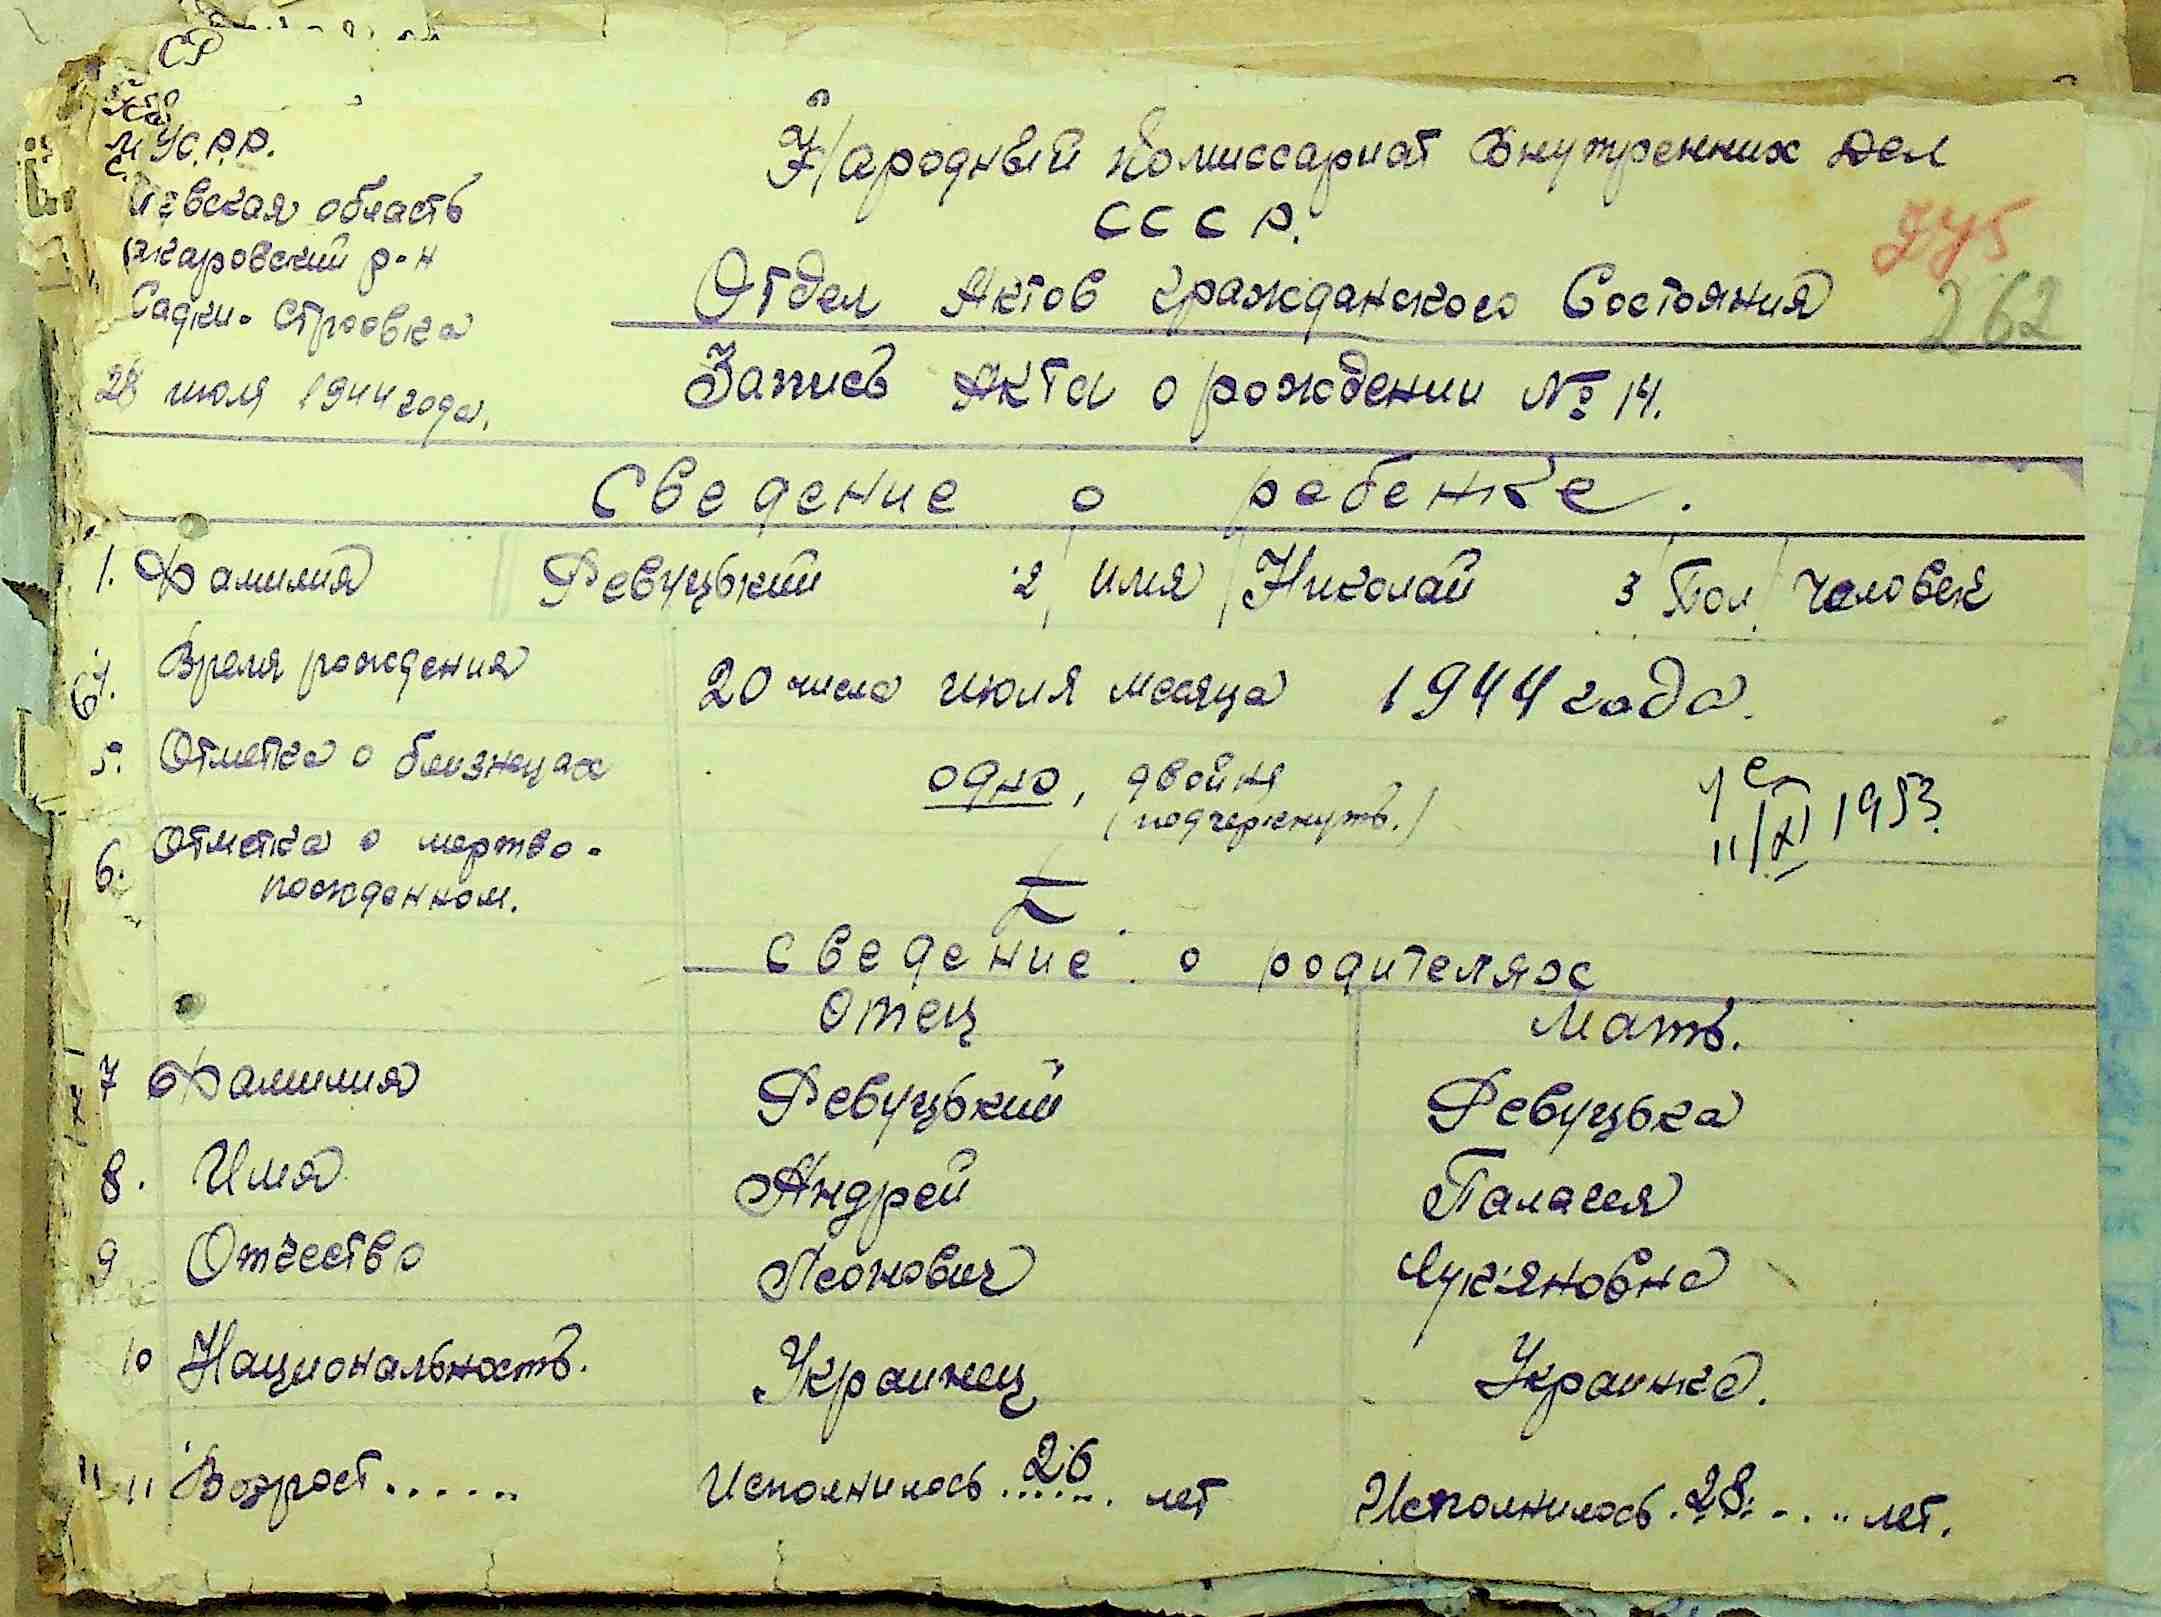 СР
УС.Р.Р.
область
каровский р-н
Садки-Строовка
28 июля 1944 года.
Народный Комиссариат Внутренних Дел
СССР.
245
Отдел Актов Гражданского Состояния
262
Запись Акта о рождении № 14.
Сведение о ребенке.
1. Фамилия Ревуцький 2 имя Николай 3 Пол человек
4. Время рождения 20 числа июля месяца 1944 года.
5. Отметка о близнецах одно, двойня
(подчеркнуть.)
11/XI 1953.
6. Отметка о мертво-
рожденном.
Сведение о родителях
Отец Мать.
7 Фамилия Ревуцький Ревуцька
8. Имя Андрей Паласея
9 Отчество Леонович Лук'яновна
10 Национальность. Украинец Украинка.
11 11 Возраст...... Исполнилось 26 лет Исполнилось 28 лет.